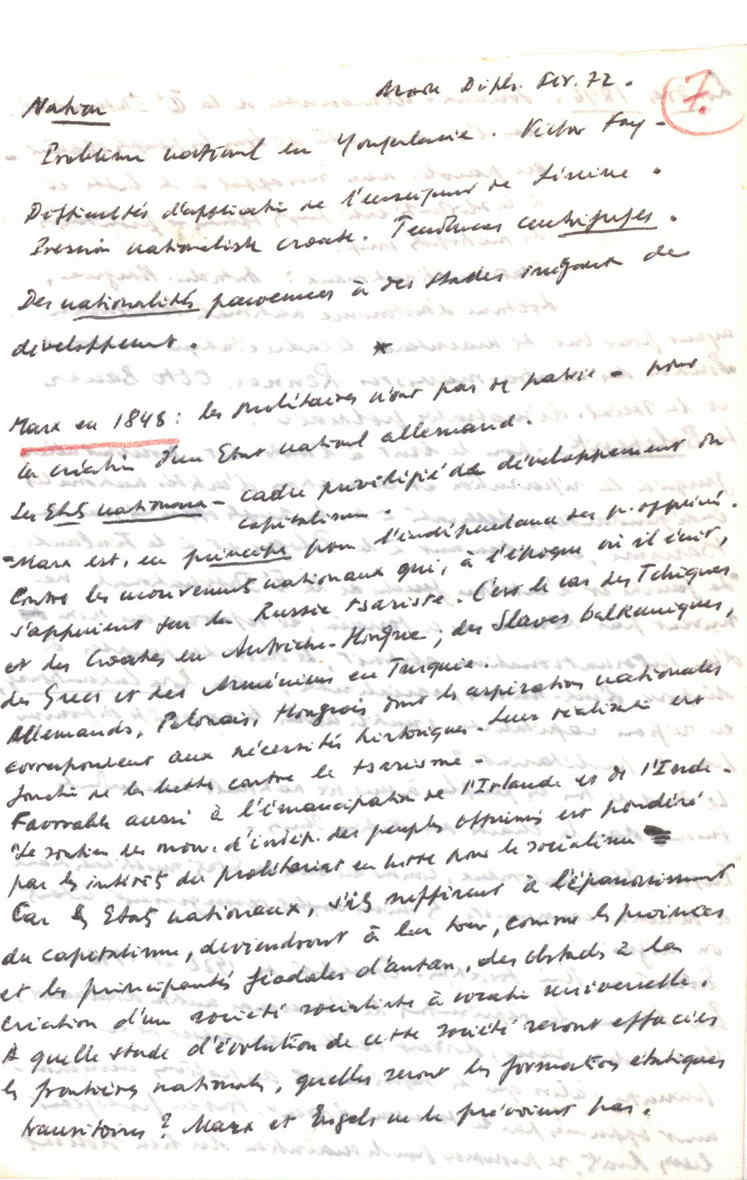 Monde Dipl. Fév. 72.
7.
Nation
Problème national en Yougoslavie. Victor Fay -
Difficultés d'applicatn de l'enseignemt de Lénine.
Pression nationaliste croate. Tendances centrifuges.
Des nationalités parvenues à des stades inégaux de
développement.
*
Marx en 1848 : les prolétaires n'ont pas de patrie - pour
la création d'un Etat national allemand.
Les Etats nationaux - cadre privilégié du développement du
capitalisme.
- Marx est, en principe pour l'indépendance des p. opprimés.
Contre les mouvements nationaux qui, à l'époque où il écrit,
s'appuient sur la Russie tsariste. C'est le cas des Tchèques
et des Croates en Autriche-Hongrie ; des Slaves balkaniques,
des Grecs et des Arméniens en Turquie.
Allemands, Polonais, Hongrois dont les aspirations nationales
correspondent aux nécessités historiques. Leur réalisatn est
fonctn de la lutte contre le tsarisme.
Favorable aussi à l'émancipatn de l'Irlande et de l'Inde.
Le soutien des mouv. d'indép. des peuples opprimés est pondéré
par les intérêts du prolétariat en lutte pour le socialisme
Car les Etats nationaux, s'ils suffirent à l'épanouissement
du capitalisme, deviendront à leur tour, comme les provinces
et les principautés féodales d'antan, des obstacles à la
création d'une société socialiste à vocatn universelle.
A quelle stade d'évolution de cette société seront effacées
les frontières nationales, quelles seront les formations étatiques
transitoires ? Marx et Engels ne le prévoient pas.